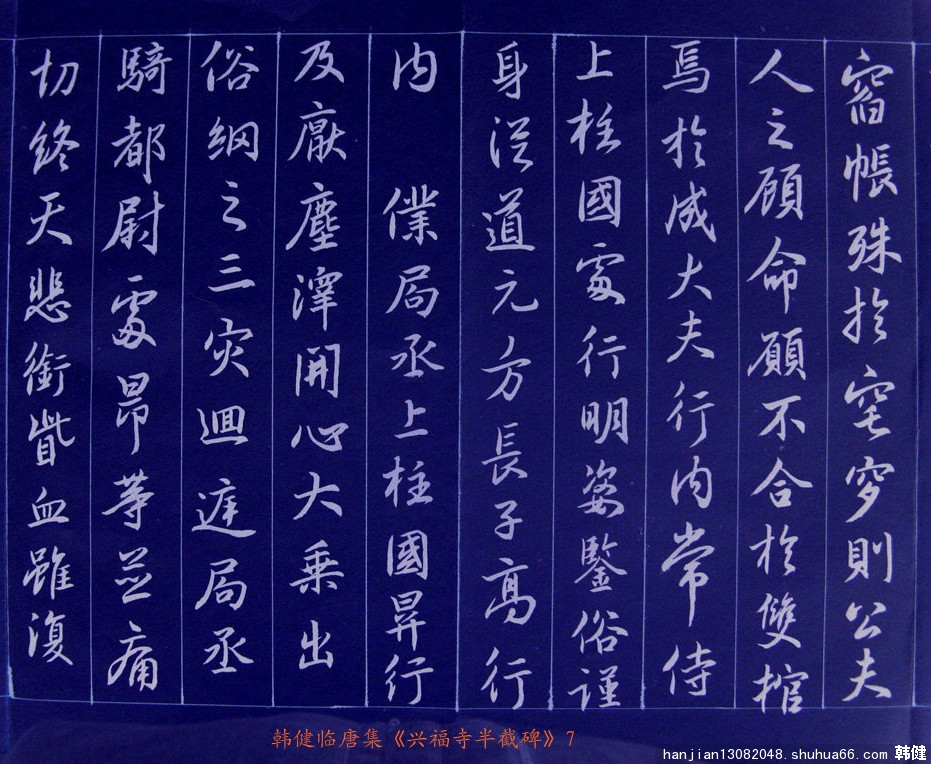 帳殊於窀穸則公夫
人之顧命願不合於雙棺
焉於成大夫行內常侍
上柱國處行明姿鑒俗謹
身從道元方長子高行
內僕局丞上柱國昇行
及厭塵澤開心大乘出
俗網之三灾迴庭局丞
騎都尉處昂等並痛
切終天悲銜眥血雖復
韩健临唐集《兴福寺半截碑》7
hanjian13082048.shuhua66.com 韩健